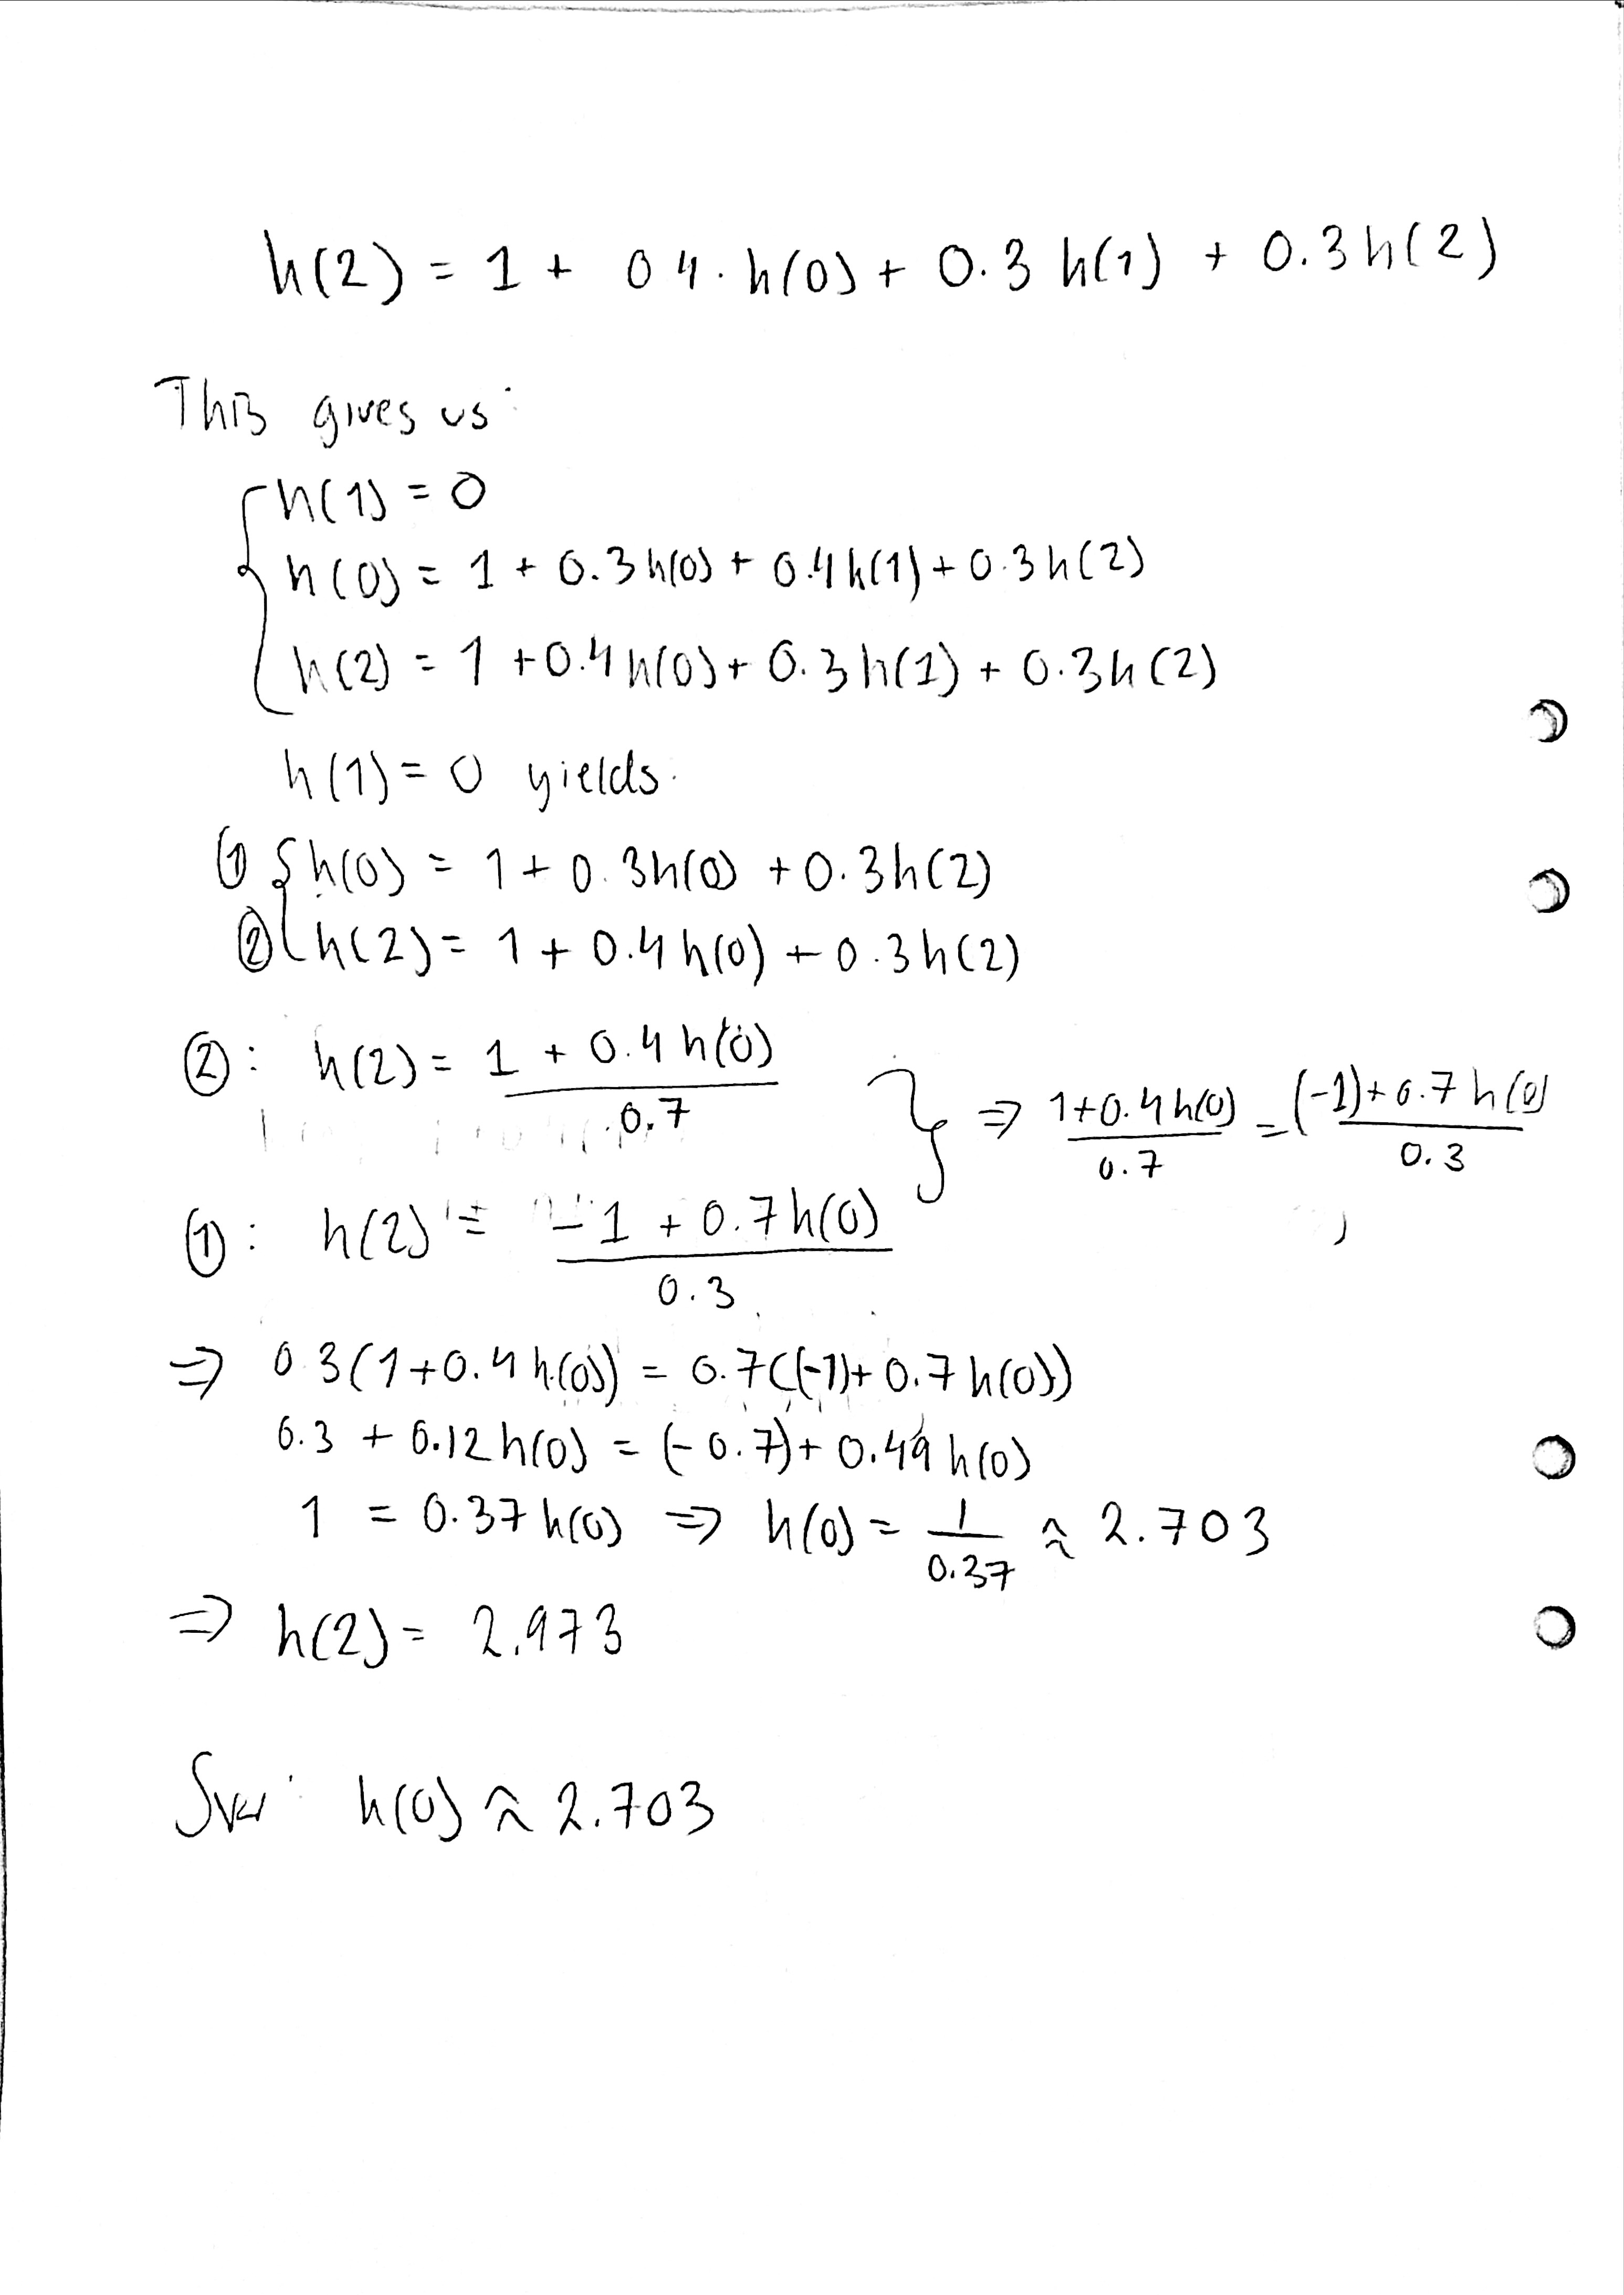 h(2) = 1 + 0 4 · h(0) + 0.3 h(1) + 0.3 h(2)
This gives us:
h(1) = 0
h(0) = 1 + 0.3 h(0) + 0.4 h(1) + 0.3 h(2)
h(2) = 1 + 0.4 h(0) + 0.3 h(1) + 0.3 h(2)
h(1) = 0 yields.
① h(0) = 1 + 0.3h(0) + 0.3h(2)
② h(2) = 1 + 0.4 h(0) + 0.3 h(2)
②: h(2) = (1 + 0.4 h(0))/0.7
⇒ (1+0.4 h(0))/0.7 = ((-1)+0.7 h(0))/0.3
①: h(2) = (-1 + 0.7 h(0))/0.3
⇒ 0.3(1+0.4 h(0)) = 0.7((-1)+0.7 h(0))
0.3 + 0.12 h(0) = (-0.7) + 0.49 h(0)
1 = 0.37 h(0) ⇒ h(0) = 1/0.37 ≈ 2.703
⇒ h(2) = 2.973
Svar: h(0) ≈ 2.703